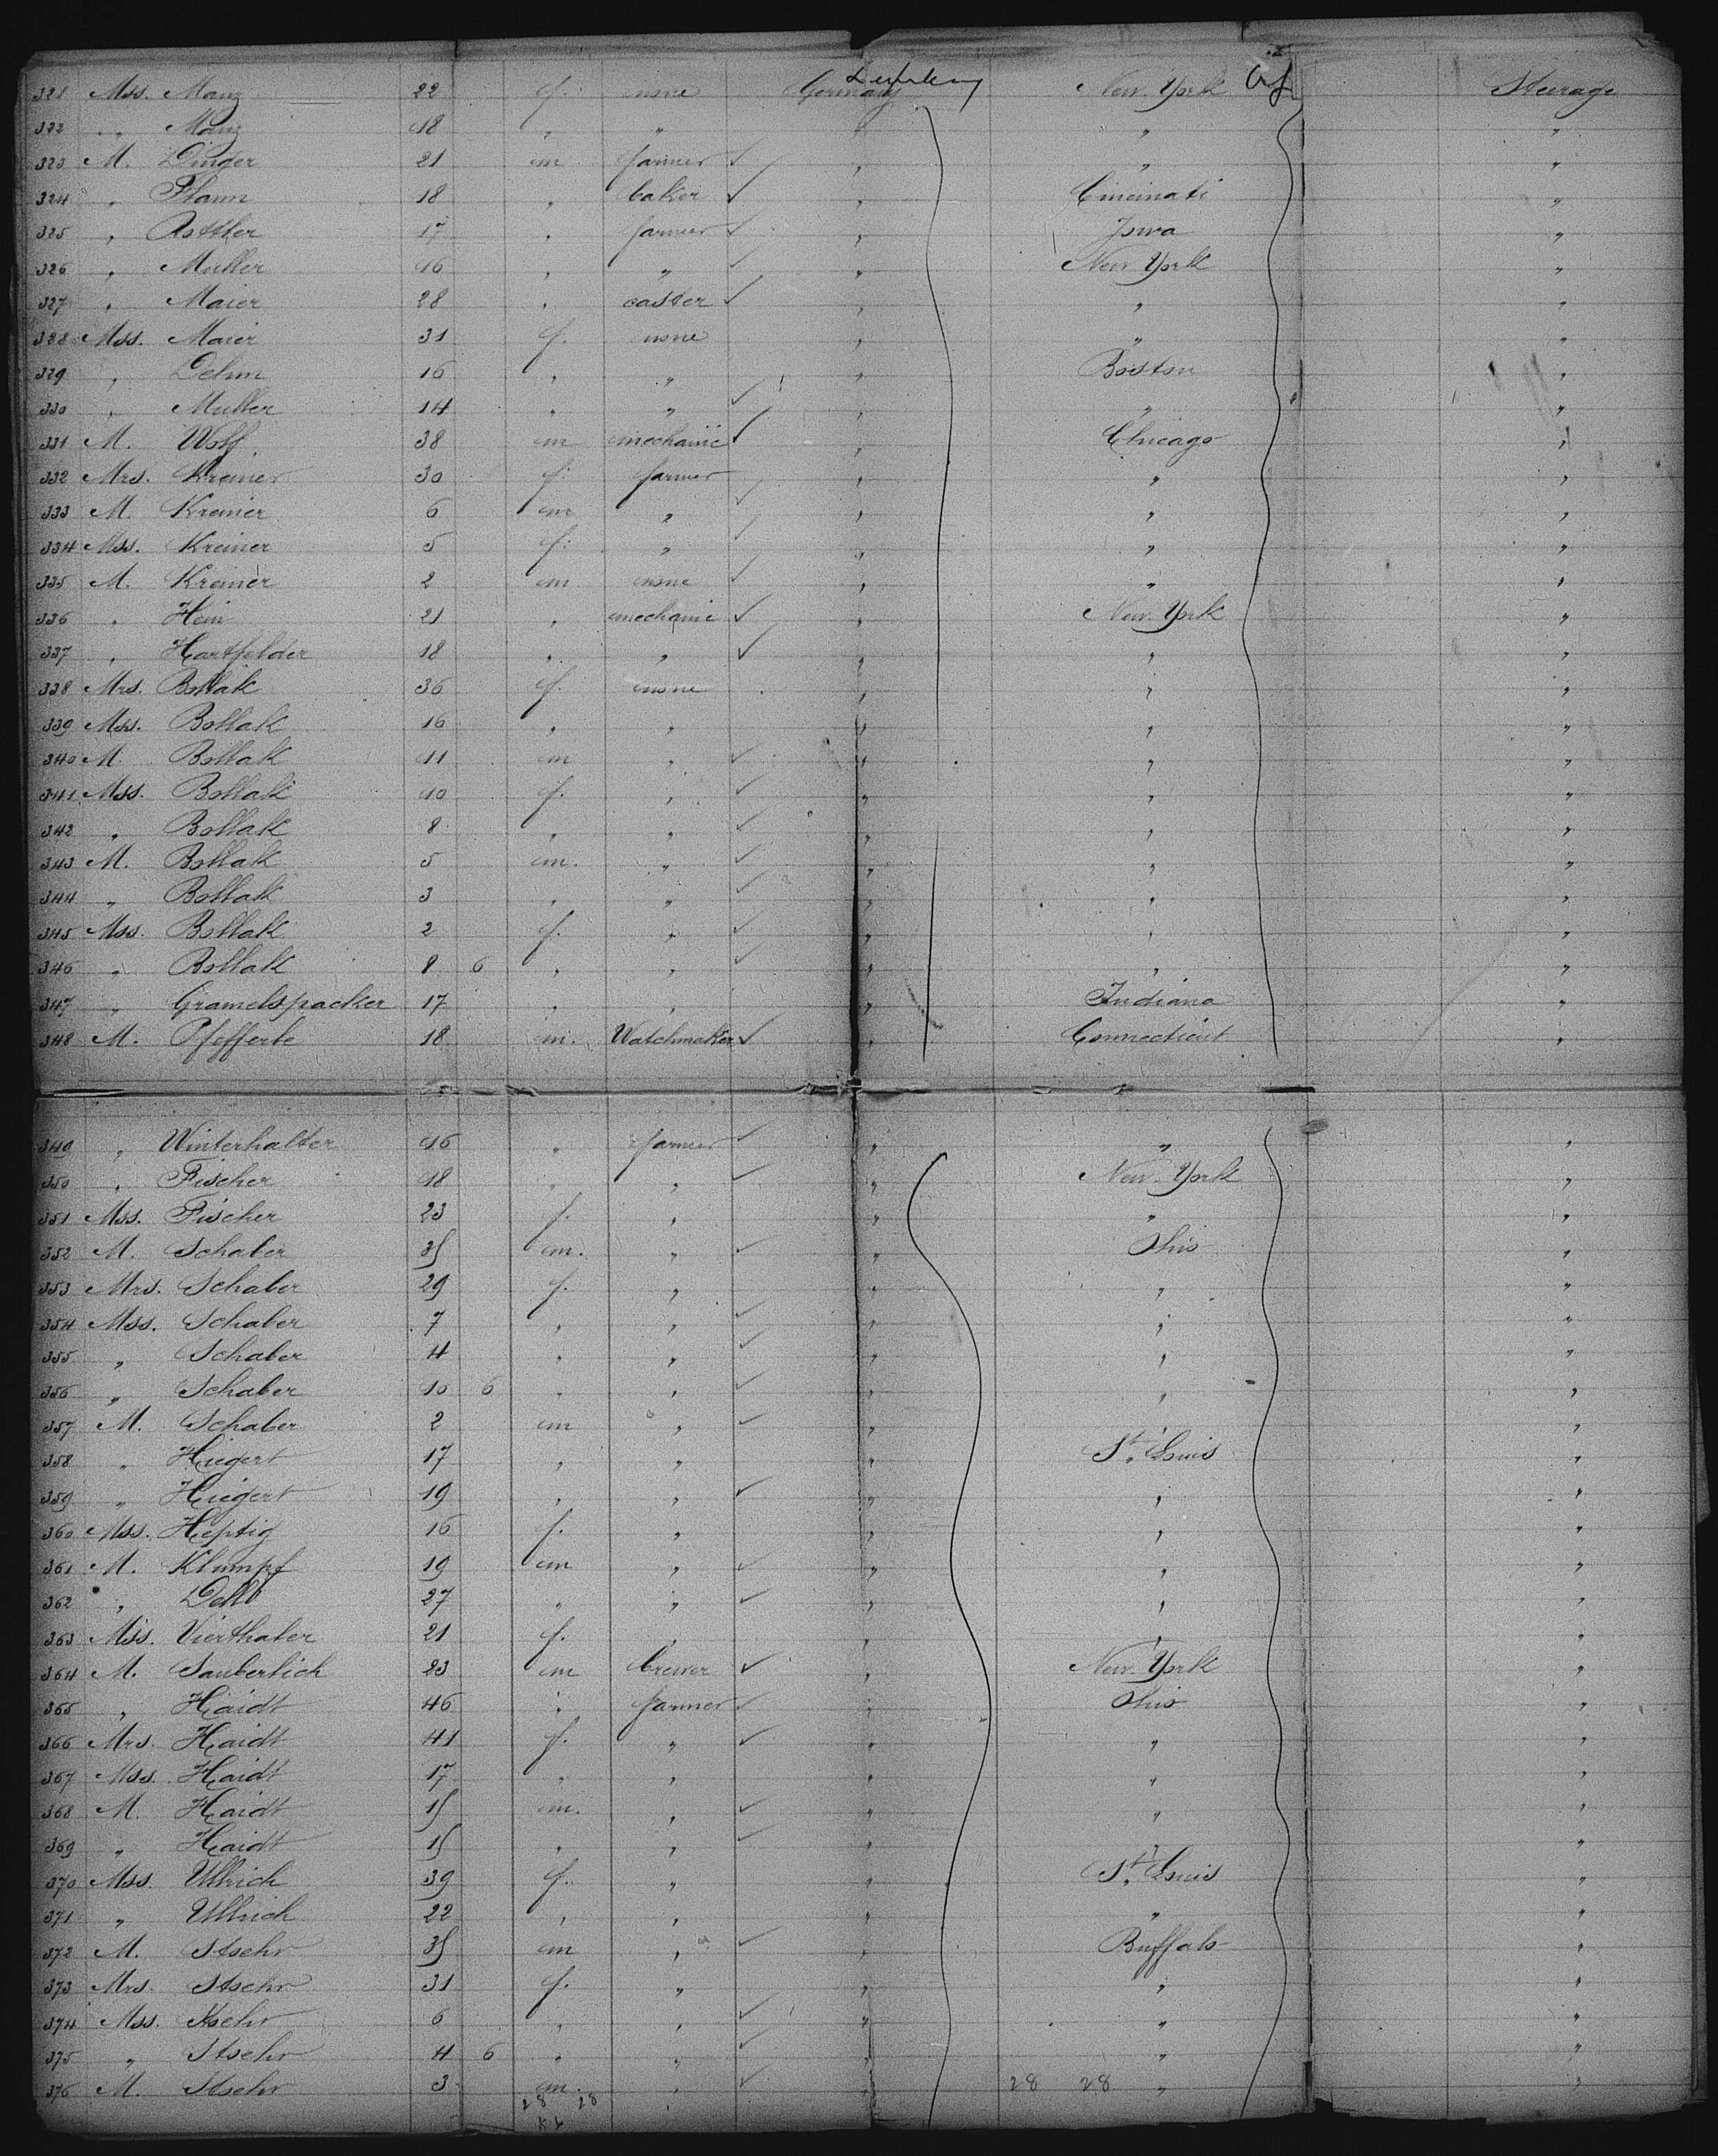 321 Mss. Manz 22 f. none Germany New York Steerage
322 „ Manz 18 „ „ „ „ „
323 M. Dinger 21 m farmer ✓ „ „ „
324 „ Plann 18 „ baker ✓ „ Cincinati „
325 „ Rottler 17 „ farmer ✓ „ Jowa „
326 „ Muller 16 „ „ ✓ „ New York „
327 „ Maier 28 „ caster ✓ „ „
328 Mss. Maier 31 f. none „ „ „
329 „ Dehm 16 „ „ „ Boston „
330 „ Muller 14 „ „ ✓ „ „ „
331 M. Wolf. 38 m mechanic ✓ „ Chicago „
332 Mrs. Kreiner 30 f. farmer „ „ „
333 M. Kreiner 6 m „ ✓ „ „ „
334 Mss. Kreiner 5 f. „ ✓ „ „ „
335 M. Kreiner 2 m none ✓ „ „ „
336 „ Hein 21 „ mechanic ✓ „ New York „
337 „ Hartfelder 18 „ „ ✓ „ „ „
338 Mrs. Bollak 36 f. none „ „ „
339 Mss. Bollak 16 „ „ „ „ „
340 M. Bollak 11 m „ ✓ „ „ „
341 Mss. Bollak 10 f. „ ✓ „ „ „
342 „ Bollak 8 „ „ ✓ „ „ „
343 M. Bollak 5 m. „ ✓ „ „ „
344 „ Bollak 3 „ „ ✓ „ „ „
345 Mss. Bollak 2 f. „ ✓ „ „ „
346 „ Bollak 8 6 „ „ ✓ „ „ „
347 „ Gramelspacker 17 „ „ „ Indiana „
348 M. Pfefferle 18 m. Watchmaker ✓ „ Connecticut „
349 „ Winterhalter 16 „ farmer ✓ „ „ „
350 „ Fischer 18 „ „ ✓ „ New York „
351 Mss. Fischer 23 f. „ „ „ „
352 M. Schaber 35 m. „ ✓ „ Ohio „
353 Mrs. Schaber 29 f. „ „ „ „
354 Mss. Schaber 7 „ „ ✓ „ „ „
355 „ Schaber 4 „ „ ✓ „ „ „
356 „ Schaber 10 6 „ „ ✓ „ „ „
357 M. Schaber 2 m „ ✓ „ „ „
358 „ Hiegert 17 „ „ „ St. Louis „
359 „ Hiegert 19 „ „ ✓ „ „ „
360 Mss. Heptig 16 f. „ „ „ „
361 M. Klumpf 19 m „ ✓ „ „ „
362 „ 27 „ „ ✓ „ „ „
363 Mss. Vierthaler 21 f. „ „ „ „
364 M. Sauberlich 23 m brewer ✓ „ New York „
365 „ Haidt 46 „ farmer ✓ „ Ohio „
366 Mrs. Haidt 41 f. „ ✓ „ „ „
367 Mss. Haidt 17 „ „ „ „ „
368 M. Haidt 15 m. „ ✓ „ „ „
369 „ Haidt 15 „ „ ✓ „ „
370 Mss. Ullrich 39 f. „ „ St. Louis „
371 „ Ullrich 22 „ „ „ „ „
372 M. Stoehr 35 m „ ✓ „ Buffalo „
373 Mrs. Stoehr 31 f. „ „ „ „
374 Mss. Stoehr 6 „ „ ✓ „ „ „
375 „ Stoehr 4 6 „ „ ✓ „ „
376 M. Stoehr 3 m. „ ✓ „ 28 28 „ „
28 28